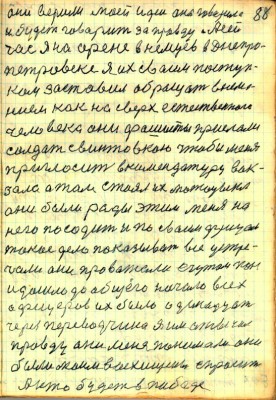 они верили моей идеи она говорила 28
и будет говорить за правду. Я сей
час я на арене в немцев в Днепро-
петровске я их своим поступ-
ком заставил обращат внима-
нием как на сверх естественого
человека они фашисты прислали
солдат с винтовкою чтобы меня
пригласит в комендатуру вок-
зала а там стоял их мотоцикл
они были рады этим меня на
него посодит и по своим друзям
такое дело показыват все устре-
чали они проважали
и дошло до общего начало всех
офицеров их было одинадцат
через переводчика я им отвечал
правду они меня понимали они
были моим восхищены спросит
А кто будет в победе